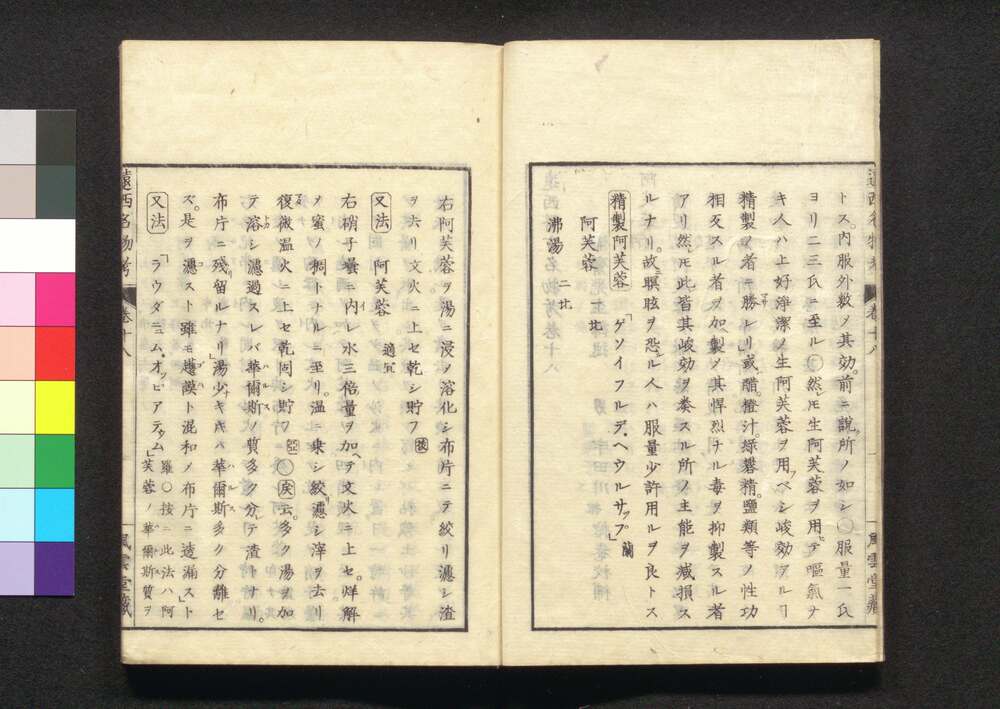 トス。内服外敷ノ其効。前ニ説所ノ如シ○服量一氏
ヨリ二三氏ニ至ル○然𪜈生阿芙蓉ヲ用テ嘔氣ヲ
キ人ハ上好淨潔ノ生阿芙蓉ヲ用ベシ峻効アルヿ
精製ノ者ニ勝レリ」或醋。橙汁。緑礬精。鹽類等ノ性功
相反スル者ヲ加製ノ其悍烈ナル毒ヲ抑製スル者
アリ然𪜈此皆其峻効ヲ奏スル所ノ主能ヲ減損ス
ルナリ。故ニ瞑眩ヲ恐ル人ハ服量少許用ルヲ良トス
精製阿芙蓉 「ゲソイフルデ、ヘウルサップ」蘭
阿芙蓉 一比
沸湯 二比
遠西名物考 卷十八 風雲堂藏
右阿芙蓉ヲ湯ニ浸ノ溶化シ布片ニテ絞リ濾シ渣
ヲ去リ文火ニ上セ乾シ貯フ
又法 阿芙蓉 適宜
右硝子壜ニ内レ水三倍量ヲ加ヘテ文火ニ上セ。烊解
ノ蜜ノ稠トナルニ至リ。温ニ乗シ絞リ濾シ滓ヲ去リ
復微温火ニ上セ乾固シ貯フ 云。多ク湯ヲ加
テ溶シ濾過スレバ華爾斯ノ質多ク分レテ渣トナリ。
布片ニ残リ留ルナリ」湯少キキハ華爾斯多ク分離セ
ズ。是ヲ濾スト雖モ護謨ト混和ノ布片ニ透漏スト
又法 「ラウダニュム、オッピアテュム」羅○按ニ此法ハ阿
芙蓉ノ華爾斯質ヲ
遠西名物考 卷十八 風雲堂藏